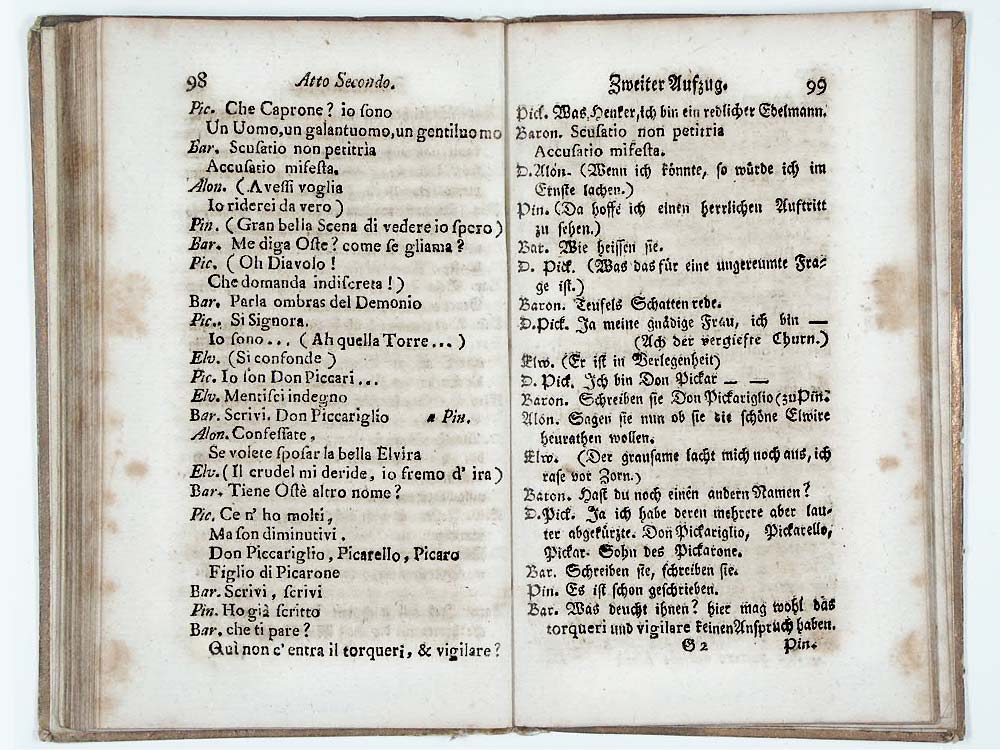 98 Atto Secondo.
Pic. Che Caprone? io ſono
Un Uomo, un galantuomo, un gentiluomo
Bar. Scuſatio non petitria
Accuſatio mifeſta.
Alon. (Aveſſi voglia
Io riderei da vero)
Pin. (Gran bella Scena di vedere io ſpero)
Bar. Me diga Oſte? come ſe gliama?
Pic. (Oh Diavolo!
Che domanda indiſcreta!)
Bar. Parla ombras del Demonio
Pic.. Si Signora.
Io ſono... (Ah quella Torre...)
Elv. (Si confonde)
Pic. Io ſon Don Piccari...
Elv. Mentiſci indegno
Bar. Scrivi. Don Piccariglio a Pin.
Alon. Confeſſate,
Se volete ſpoſar la bella Elvira
Elv. (Il crudel mi deride, io fremo d' ira)
Bar. Tiene Oſtè altro nome?
Pic. Ce n' ho molti,
Ma ſon diminutivi.
Don Piccariglio, Picarello, Picaro
Figlio di Picarone
Bar. Scrivi, ſcrivi
Pin. Ho già ſcritto
Bar. che ti pare?
Quì non c' entra il torqueri, & vigilare?
Zweiter Aufzug. 99
Pick. Was Henker, ich bin ein redlicher Edelmann.
Baron. Scuſatio non petitria
Accuſatio mifeſta.
D. Alon. (Wenn ich könnte, ſo würde ich im
Ernſte lachen.)
Pin. (Da hoffe ich einen herrlichen Auftritt
zu ſehen.)
Bar. Wie heiſſen ſie.
D. Pick. (Was das für eine ungereumte Fra-
ge iſt.)
Baron. Teufels Schatten rede.
D. Pick. Ja meine gnädige Frau, ich bin —
(Ach der vergiefte Thurn.)
Elw. (Er iſt in Verlegenheit)
D. Pick. Ich bin Don Pickar — —
Baron. Schreiben ſie Don Pickariglio (zu Pin.
Alon. Sagen ſie nun ob ſie die ſchöne Elwire
heurathen wollen.
Elw. (Der grauſame lacht mich noch aus, ich
raſe vor Zorn.)
Baron. Haſt du noch einen andern Namen?
D. Pick. Ja ich habe deren mehrere aber lau-
ter abgekürzte. Don Pickariglio, Pickarello,
Pickar. Sohn des Pickarone.
Bar. Schreiben ſie, ſchreiben ſie.
Pin. Es iſt ſchon geſchrieben.
Bar. Was deucht ihnen? hier mag wohl das
torqueri und vigilare keinen Anſpruch haben.
G 2 Pin.